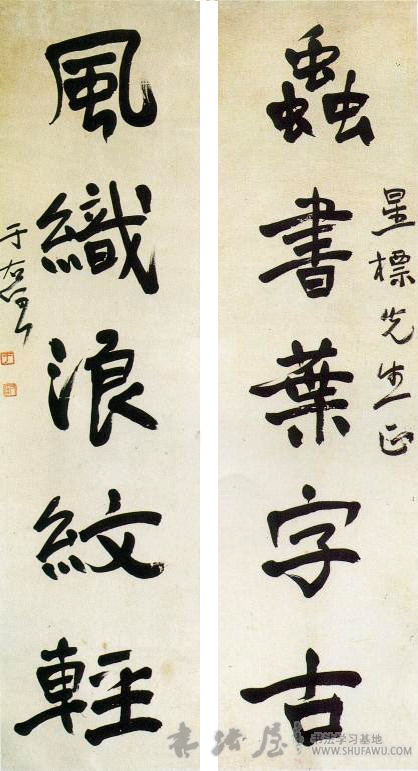 星標先生正
蟲書葉字古
風織浪紋輕
于右任
书法屋
书法学习基地
WWW.SHUFAWU.COM